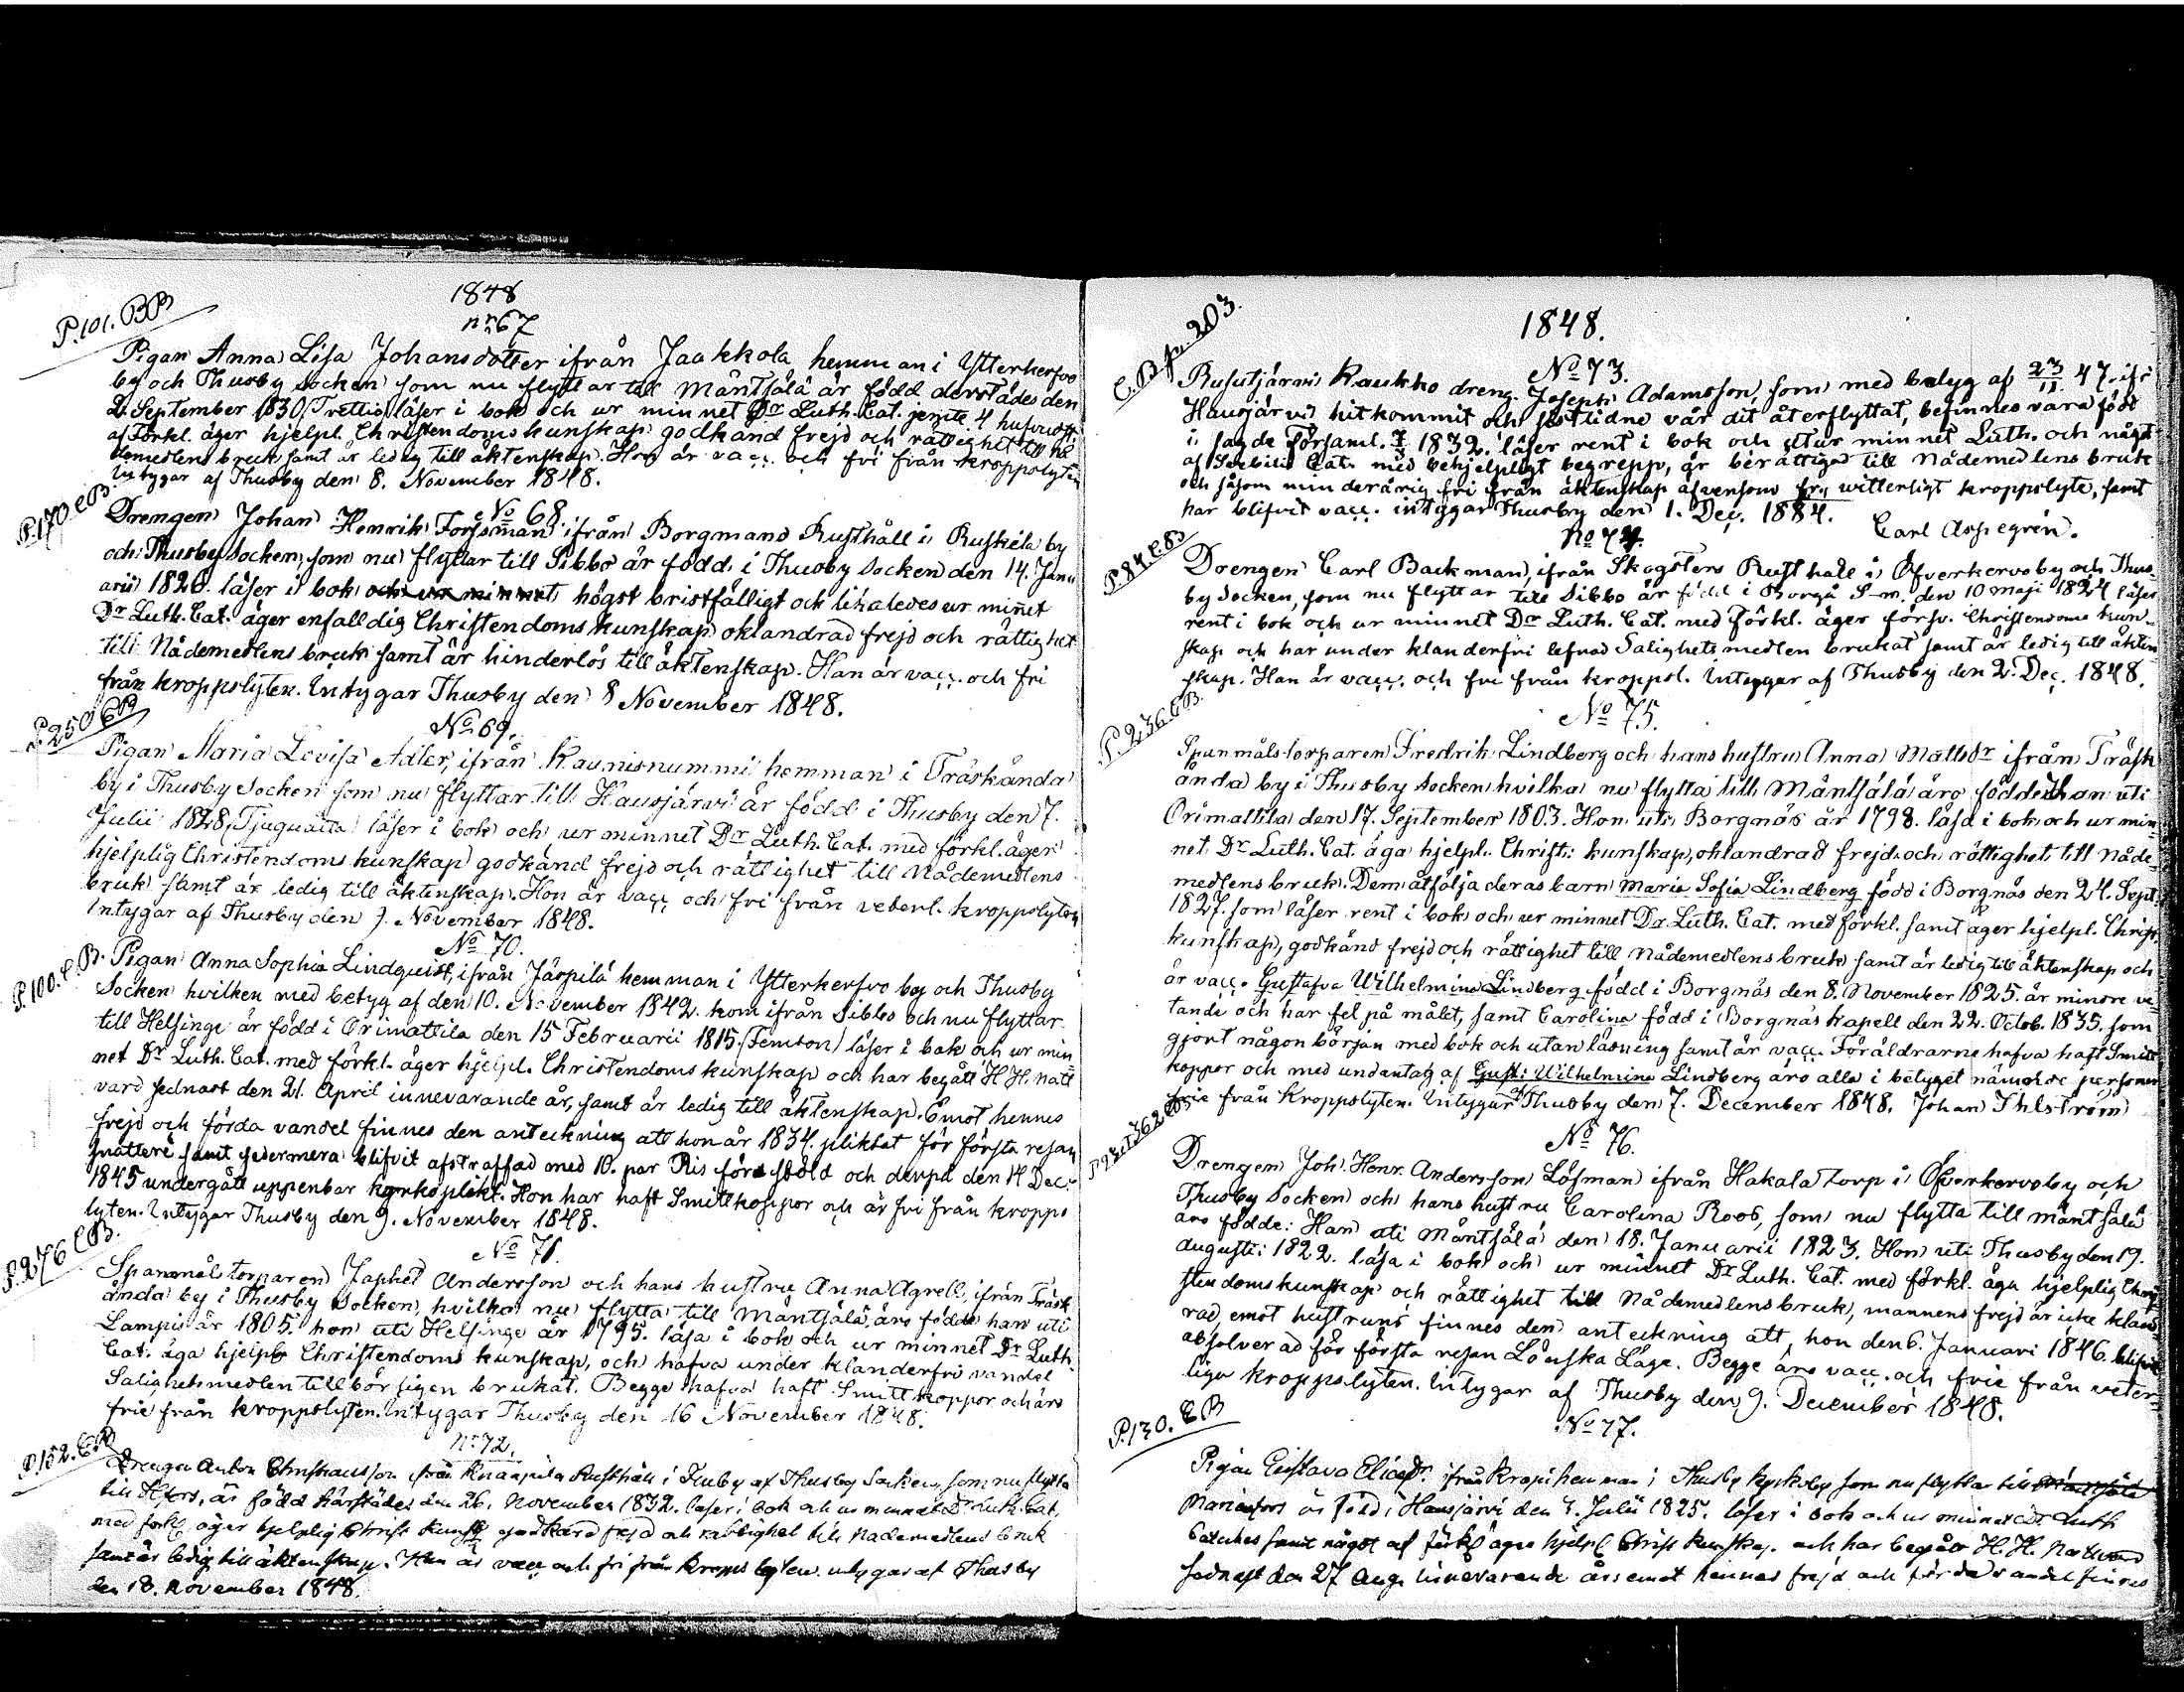 1848
P. 101. CB
nr 67
Pigan Anna Lisa Johansdotter ifrån Jaakkola hemman i Ytterkerfvo
by och Thusby socken som nu flyttar till Mäntsälä är född derstädes den
2. September 1830 (Trettio) läser i bok och ur minnet Dr Luth. Cat. jemte 4 hufvustk
af Förkl. äger hjelpl. Christendomskunskap godkänd frejd och rättighet till Nå
demedlens bruk samt är ledig till äktenskap. Hon är vacc. och fri från kroppslyten
Intygar af Thusby den 8. November 1848.
P. 170 CB
No 68.
Drengen Johan Henrik Forssman ifrån Borgmans Rusthåll i Ruskéla by
och Thusby Socken, som nu flyttar till Sibbo är född i Thusby Socken den 14. Janu
arii 1826. läser i bok och ur minnet högst bristfälligt och likaledes ur minet
Dr Luth. Cat. äger enfalldig Christendoms kunskap oklandrad frejd och rättighet
till Nådemedlens bruk samt är hinderlös till äktenskap. Han är vacc. och fri
från kroppslyten. Intygar Thusby den 8 November 1848.
P. 250 CB
No 69.
Pigan Maria Lovisa Adler, ifrån Kaunisnummi hemman i Träskända
by i Thusby Socken som nu flyttar till Hausjärvi är född i Thusby den 7.
Julii 1828 (Tjuguåtta) läser i bok och ur minnet Dr Luth. Cat. med förkl. äger
hjelplig Christendoms kunskap godkänd frejd och rättighet till Nådemedlens
bruk samt är ledig till äktenskap. Hon är vacc och fri från veterl. kroppslyten
Intygar af Thusby den 9. November 1848.
P. 100. C.B.
No 70.
Pigan Anna Sophia Lindqvist, ifrån Järpilä hemman i Ytterkerfvo by och Thusby
Socken hvilken med betyg af den 10. November 1842. kom ifrån Sibbo och nu flyttar
till Helsinge är född i Orimattila den 15 Februarii 1815. (Femton) läser i bok och ur min
net Dr Luth. Cat. med förkl. äger hjelpl. Christendoms kunskap och har begått H. H. natt
vard sednast den 21. April innevarande år, samt är ledig till äktenskap. Emot hennes
frejd och förda vandel finnes den anteckning att hon år 1834. pliktat för första resan
snatteri samt sedermera blifvit afstraffad med 10. par Ris för stöld och derpå den 14 Dec:
1845 undergått uppenbar kyrkoplikt. Hon har haft Smittkoppor och är fri från kropps
lyten. Intygar Thusby den 9. November 1848.
P. 276 CB.
No 71.
Spanmåls torparen Japhet Andersson och hans hustru Anna Agrell, ifrån Träsk
ända by i Thusby Socken, hvilka nu flytta till Mäntsälä, äro födde han uti
Lampis år 1805. hon uti Helsinge år 1795. läsa i bok och ur minnet Dr Luth.
Cat. äga hjelpl Christendoms kunskap, och hafva under klanderfri vandel
Salighetsmedlen tillbörligen brukat. Begge hafva haft Smittkoppor och äro
frie från kroppslyten. Intygar Thusby den 16 November 1848.
P. 152. C.B
No 72.
Drengen Anton Christiansson från Knaapila Rusthåll i Kuby af Thusby Socken, som nu flytta
till Hfors, är född härstädes den 26. November 1832. läser i bok och ur minnet Dr Luth. Cat.
med förkl. äger hjelplig Christ kunsk godkänd frejd och rättighet till Nådemedlens bruk
samt är ledig till äktenskap. Han är vacc och fri från kropps lyten. intygar af Thusby
den 18. November 1848.
1848.
C.B. pa. 203.
No 73.
Rusutjärvi Kaukko dreng Joseph Adamsson, som med betyg af 23/11 47. ifr
Hausjärvi hitkommit och sistlidne vår dit återflyttat, befinnes vara född
i sagde Församl. 1832. läser rent i bok och uttur minnet Luth. och något
af Svebilii Cat. med behjelpligt begrepp, är berättigad till Nådemedlens bruk
och såsom minderårig fri från äktenskap äfvensom fr. witterligt kroppslyte, samt
har blifvit vacc. intygar Thusby den 1. Dec. 1884.
Carl Aspegrén.
P. 84. C.B
No 74.
Drengen Carl Backman, ifrån Skogsters Rusthåll i Öfverkervoby och Thus-
by Socken, som nu flyttar till Sibbo är född i Borgå S-n. den 10 maji 1824 läser
rent i bok och ur minnet Dr Luth. Cat. med förkl. äger försv. Christendoms kun-
skap och har under klanderfri lefnad Salighetsmedlen brukat samt är ledig till äkten
skap. Han är vacc. och fri från kroppsl. Intygar af Thusby den 2. Dec. 1848.
P. 236 CB.
No 75.
Spanmåls-torparen Fredrik Lindberg och hans hustru Anna Mattsdr ifrån Träsk
ända by i Thusby Socken hvilka nu flytta till Mäntsälä äro födde Han uti
Orimattila den 17. September 1803. Hon uti Borgnäs år 1798. läsa i bok och ur min
net Dr Luth. Cat. äga hjelpl. Christi: kunskap, oklandrad frejd och rättighet till Nåde-
medlens bruk. Dem åtfölja deras barn Maria Sofia Lindberg född i Borgnäs den 24. Sept.
1827. som läser rent i bok och ur minnet Dr Luth. Cat. med förkl. samt äger hjelpl. Christ
kunskap, godkänd frejd och rättighet till Nådemedlens bruk samt är ledig till äktenskap och
är vacc. Gustafva Wilhelmina Lindberg född i Borgnäs den 8. November 1825. är mindre ve
tande och har fel på målet, samt Carolina född i Borgnäs kapell den 22. Octob. 1835. som
gjort någon början med bok och utanläsning samt är vacc. Föräldrarne hafva haft Smitt
koppor och med undantag af Gust: Wilhelmina Lindberg äro alla i betyget nämnde personer
frie från kroppslyten. Intygar Thusby den 7. December 1848. Johan Ihlström
No 76.
Drengen Joh. Henr. Andersson Löfman ifrån Hakala torp i Öfverkervoby och
Thusby Socken och hans hustru Carolina Roos, som nu flytta till Mäntsälä
äro födde: Han uti Mäntsälä den 18. Januarii 1823. Hon uti Thusby den 19.
Augusti: 1822. läsa i bok och ur minnet Dr Luth. Cat. med förkl. äga hjelplig Chris
tendomskunskap och rättighet till Nådemedlens bruk, mannens frejd är icke kland-
rad, emot hustruns finnes den anteckning att, hon den 6. Januari 1846. blifvit
absolverad för första resan Lönska Läge. Begge äro vacc. och frie från veter-
liga kroppslyten. Intygar af Thusby den 9. December 1848.
P. 130. CB
No 77.
Pigan Gustava Eliædr. ifrån Kropi hemman i Thusby kyrkoby som nu flyttar till Mäntsälä
Mariæfors är född i Hausjärvi den 7. Julii 1825. läser i bok och ur minnet Dr Luth
Cateches samt något af förkl äger hjelpl Christ kunskap. och har begått H. H. Nattvard
sednast den 27 Aug. innevarande år. emot hennes frejd och förda vandel finnes